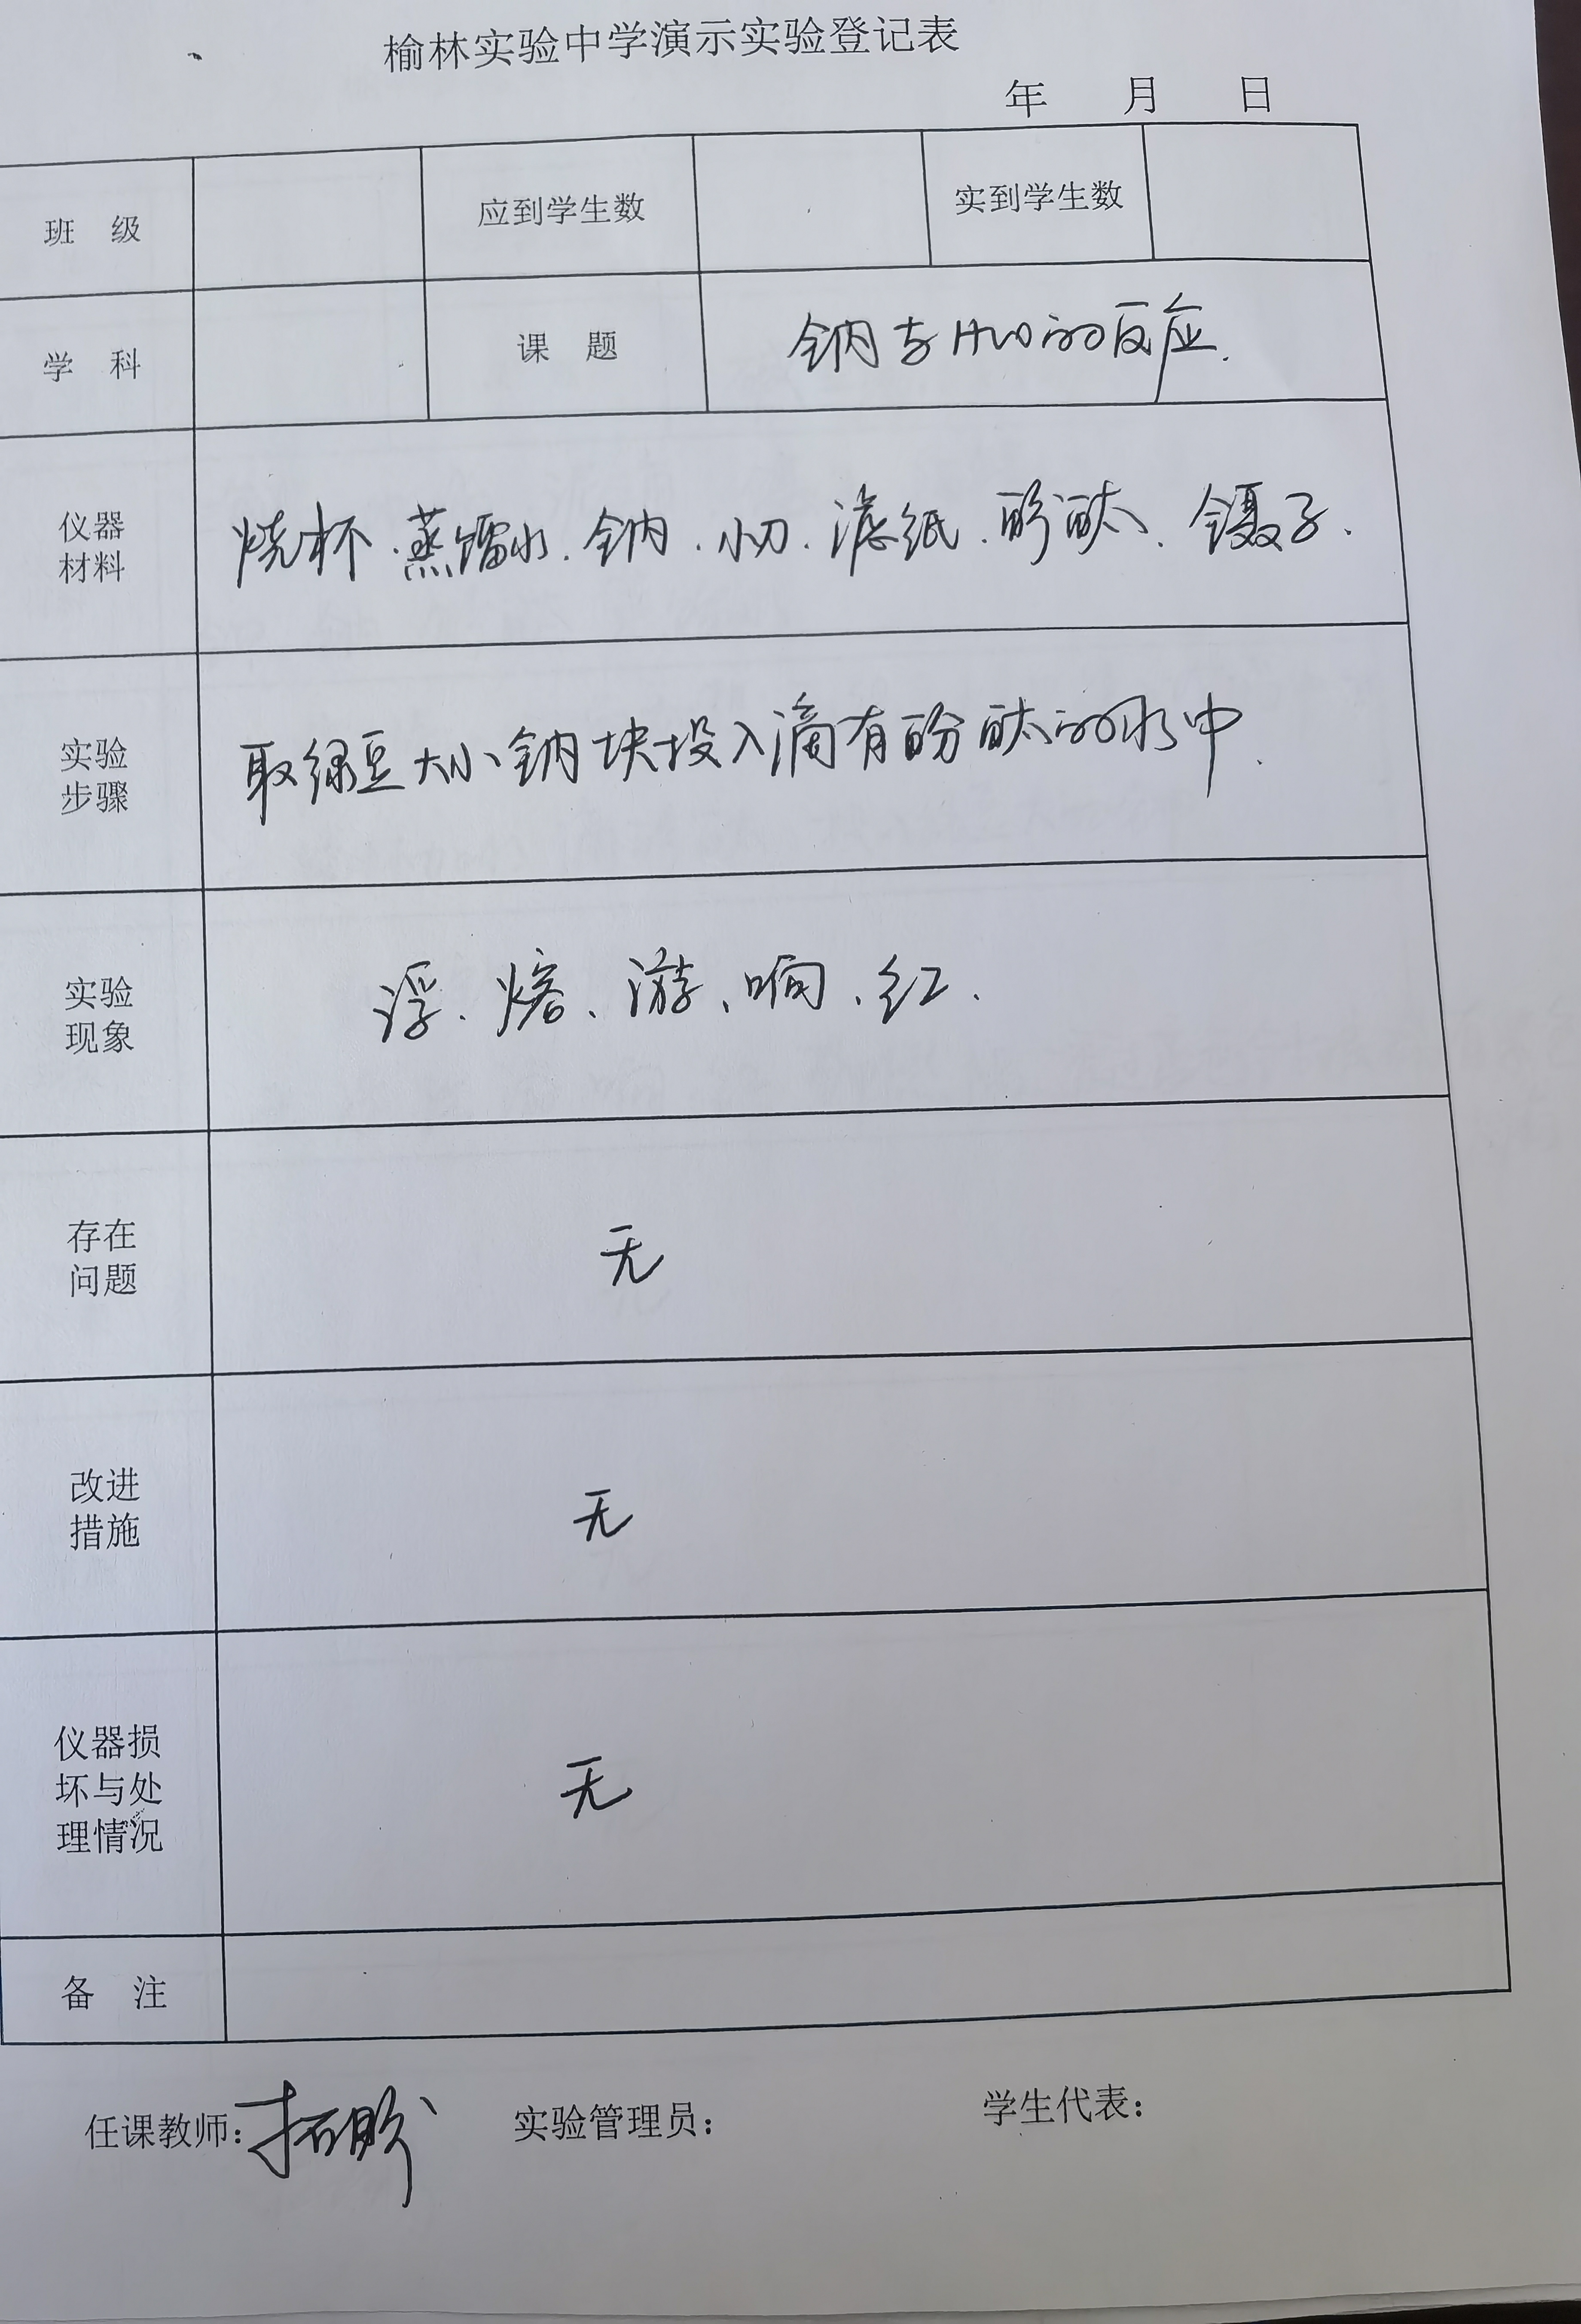 榆林实验中学演示实验登记表
年 月 日
班 级 应到学生数 实到学生数
学 科 课 题 钠与H2O的反应.
仪器
材料
烧杯.蒸馏水.钠.小刀.滤纸.酚酞.镊子.
实验
步骤
取绿豆大小钠块投入滴有酚酞的水中.
实验
现象
浮、熔、游、响、红.
存在
问题
无
改进
措施
无
仪器损
坏与处
理情况
无
备 注
任课教师: 实验管理员: 学生代表: